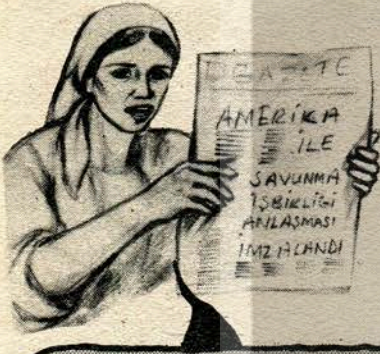 AMERİKA
İLE
SAVUNMA
İŞBİRLİĞİ
ANLAŞMASI
İMZALANDI